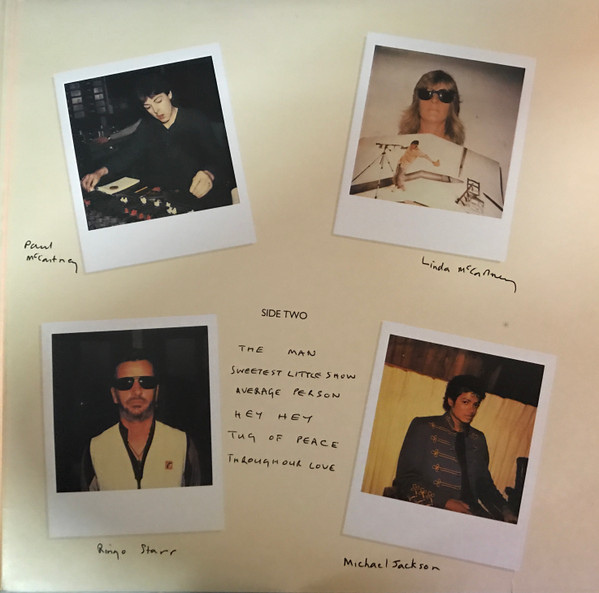 Paul
McCartney
Linda McCartney
SIDE TWO
THE MAN
SWEETEST LITTLE SHOW
AVERAGE PERSON
HEY HEY
TUG OF PEACE
THROUGH OUR LOVE
Ringo Starr
Michael Jackson